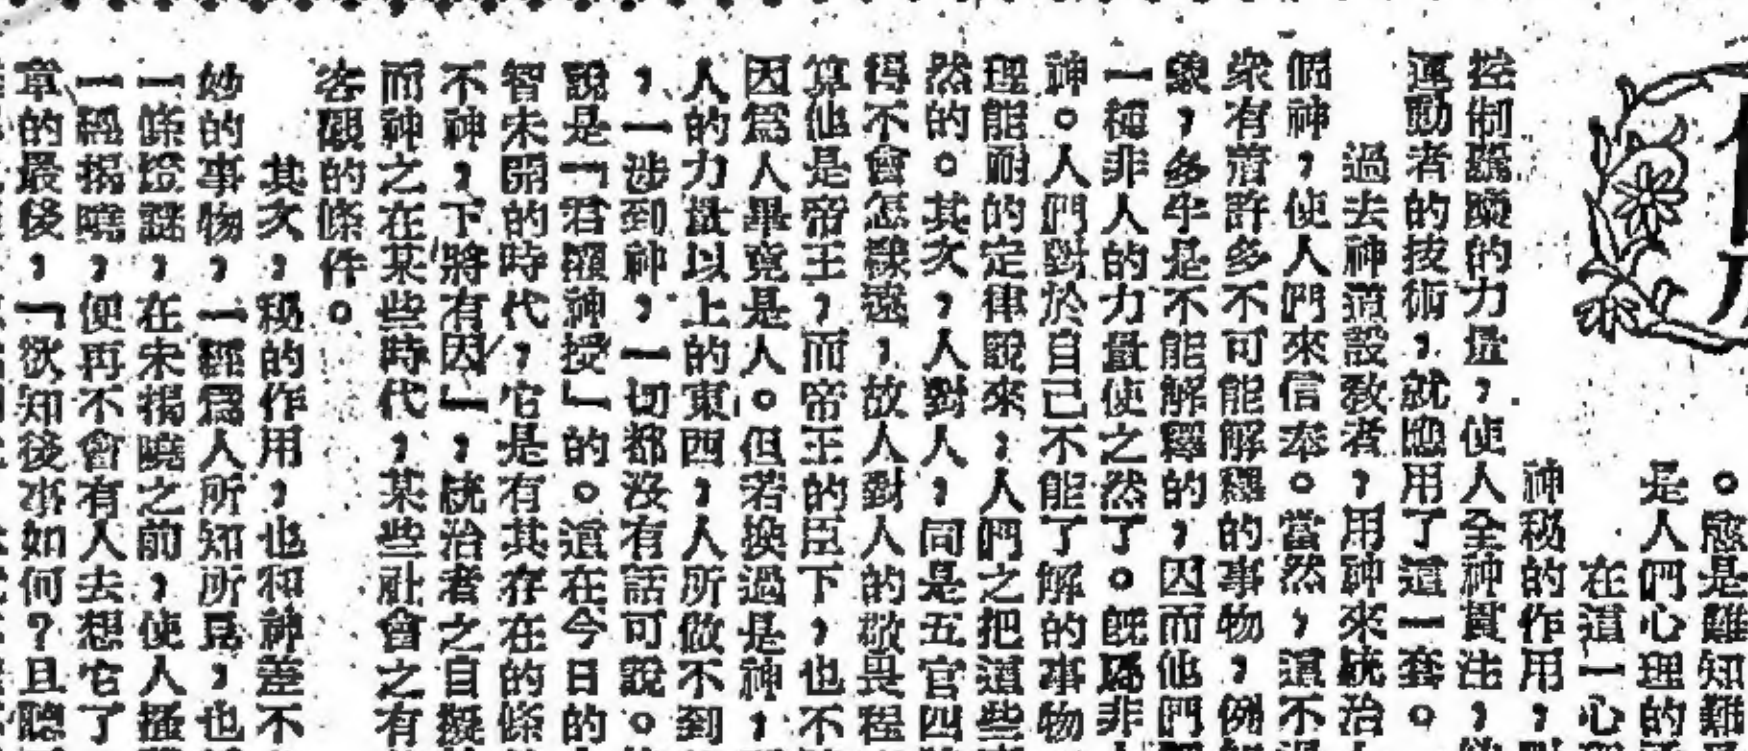 。應是難知難
是人們心理的
在這一心
神秘的作用，
控制羣衆的力量，使人全神貫注，
運動者的技術，就應用了這一套。
過去神道設教者，用神來統治
個神，使人們來信奉。當然，還不
衆有着許多不可能解釋的事物，例
象，多半是不能解釋的，因而他們
一種非人的力量使之然了。既屬非
神。人們對於自己不能了解的事物
理能耐的定律說來，人們之把這些
然的。其次，人對人，同是五官四
得不會怎樣遠，故人對人的敬畏程
算他是帝王，而帝王的臣下，也不
因爲人畢竟是人。但若換過是神，
人的力量以上的東西，人所做不到
，一涉到神，一切都沒有話可說。
說是「君權神授」的。這在今日的
智未開的時代，它是有其存在的條
不神，下將有因」，統治者之自擬
而神之在某些時代，某些社會之有
客觀的條件。
其次，秘的作用，也和神差不
妙的事物，一經爲人所知所見，也
一條燈謎，在未揭曉之前，使人搔
一經揭曉，便再不會有人去想它了
章的最後，「欲知後事如何？且聽